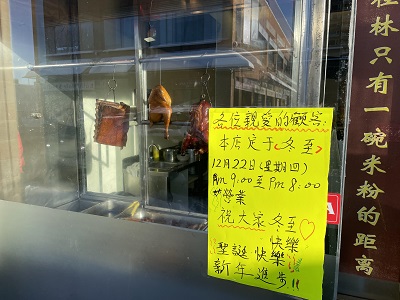 各位親愛的顧客:
本店定于(冬至)
12月22日(星期四)
Am 9:00至Pm 8:00
營業
祝大家冬至
快樂
聖誕快樂
新年進步!!
桂林只有一碗米粉的距离